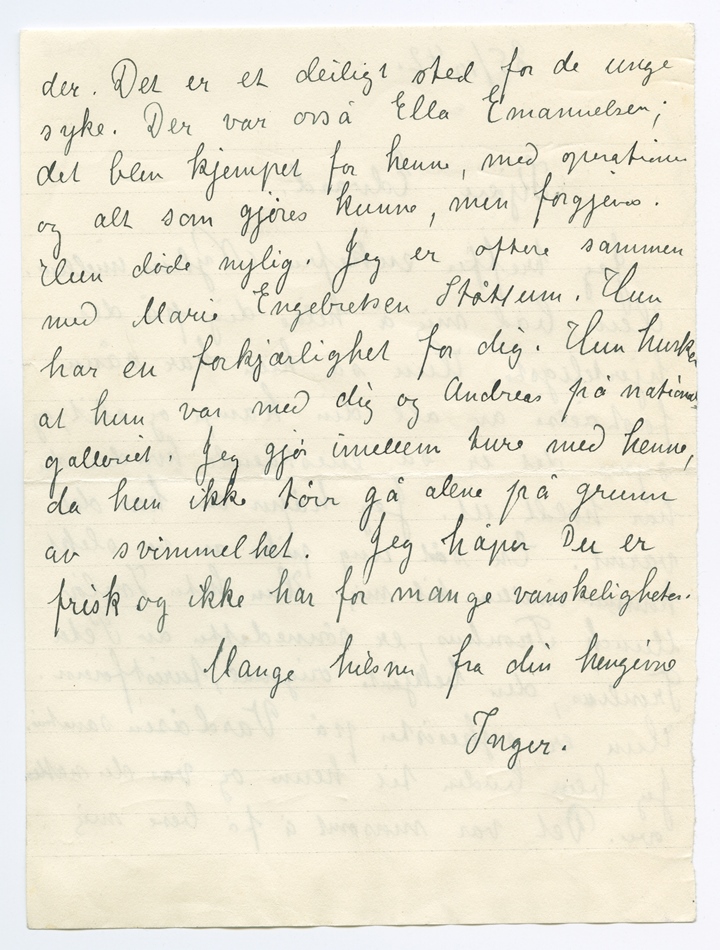 der. Det er et deiligt sted for de unge
syke. Der var også Ella Emanuelsen;
det blev kjempet for henne, med operationer
og alt som gjøres kunne, men forgjeves.
Hun døde nylig. Jeg er oftere sammen
med Marie Engebretsen Støttum. Hun
har en forkjærlighet for dig. Hun husker
at hun var med dig og Andreas på national
galleriet. Jeg gjør imellem ture med henne,
da hun ikke tør gå alene på grunn
av svimmelhet. Jeg håper Du er
frisk og ikke har for mange vanskeligheter.
Mange hilsner fra din hengivne
Inger.